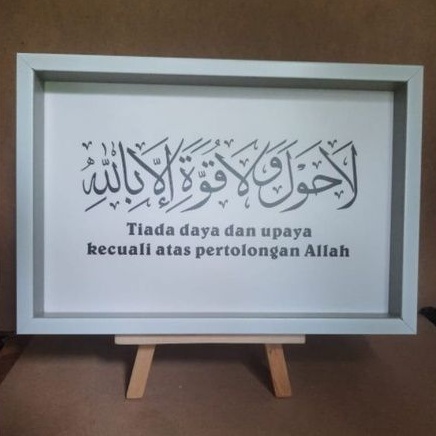 لَا حَوْلَ وَلَا قُوَّةَ إِلَّا بِاللَّهِ
Tiada daya dan upaya
kecuali atas pertolongan Allah